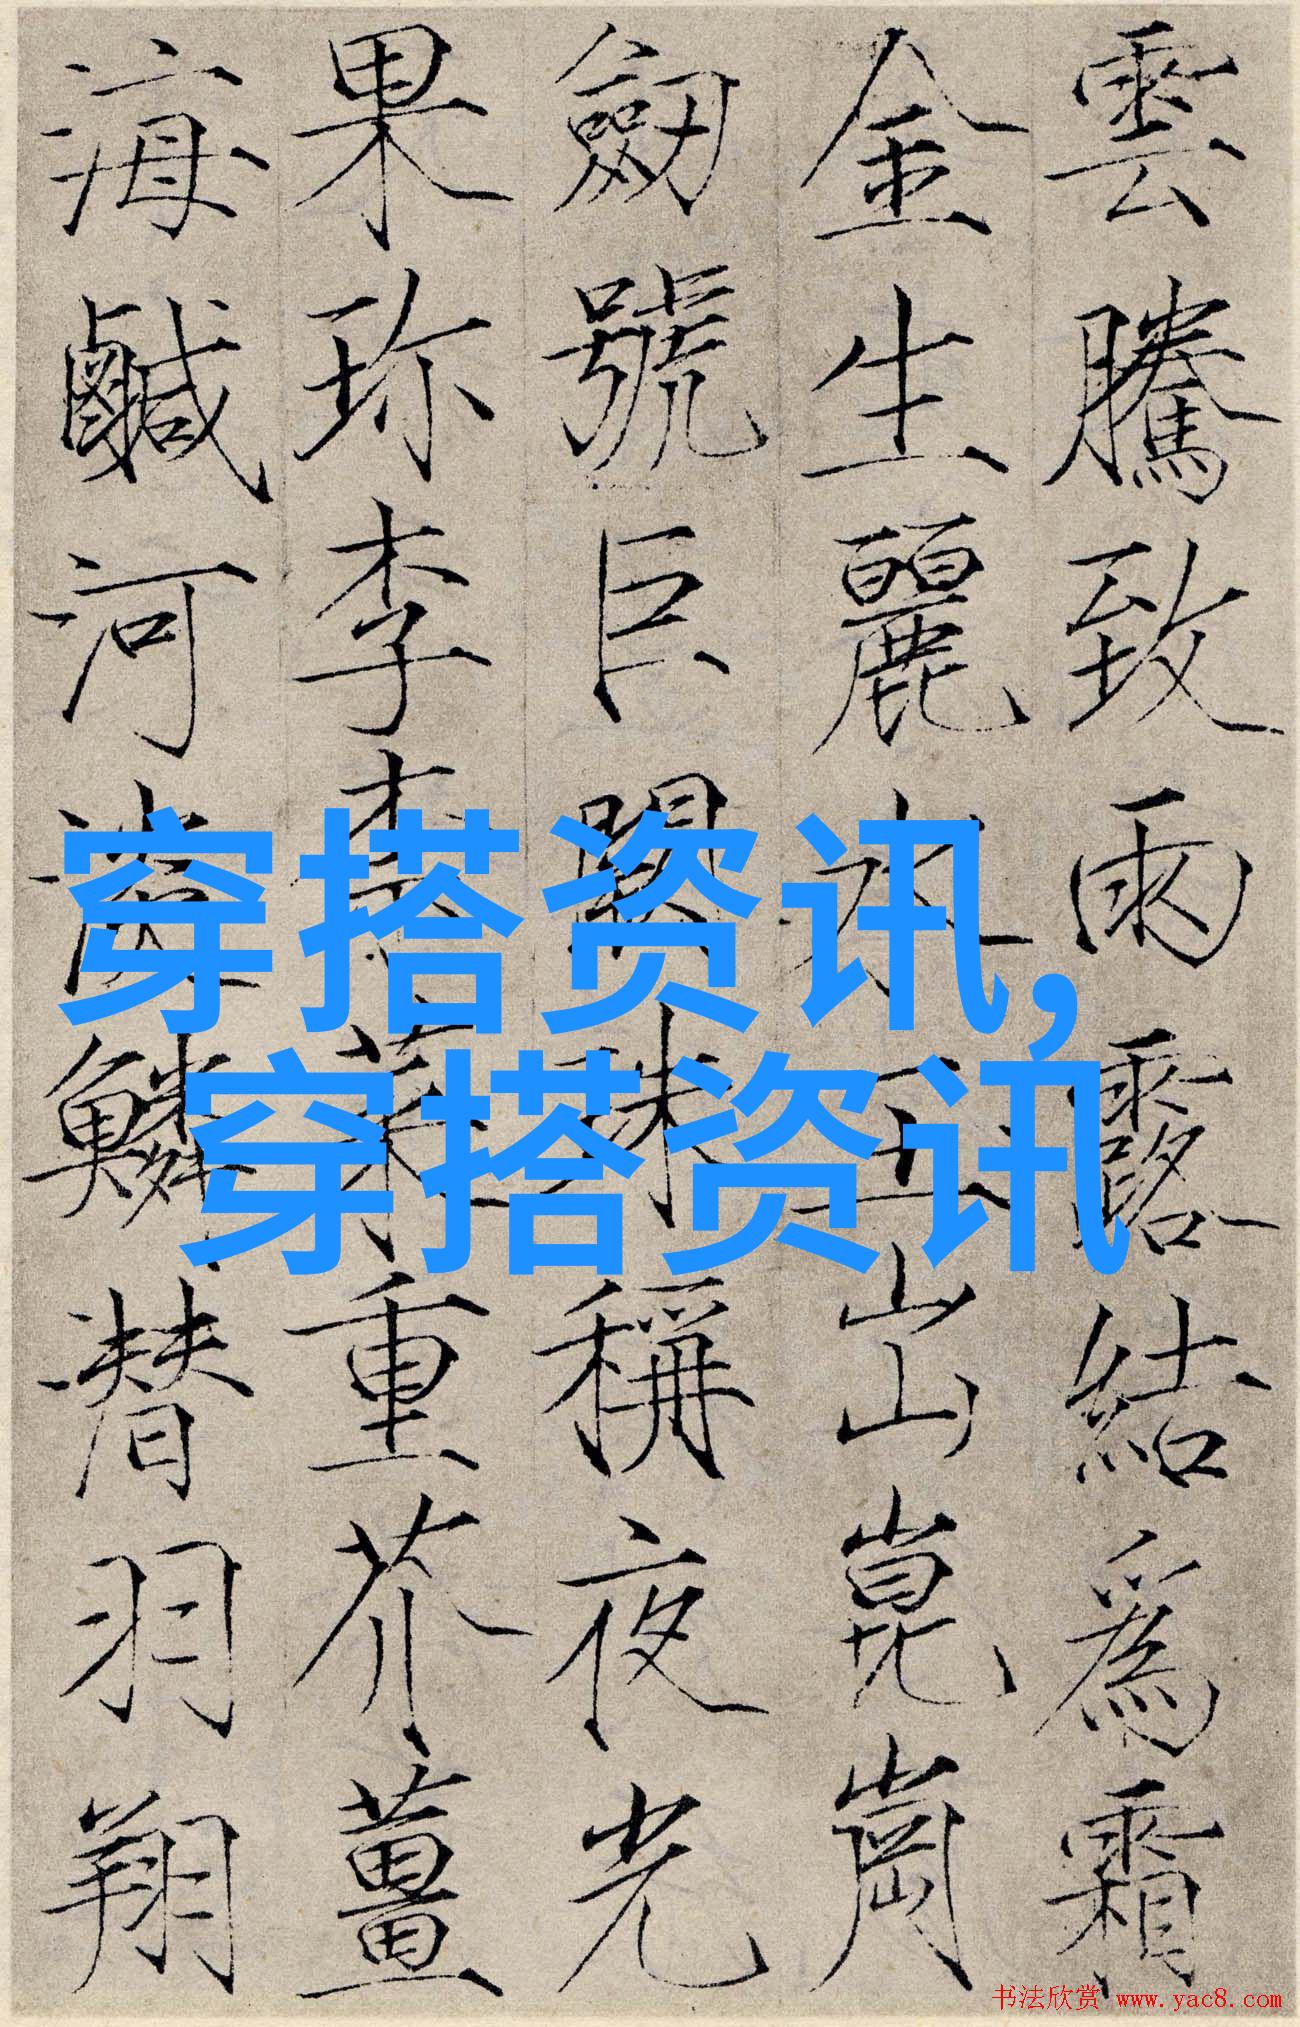 雲騰致雨露結爲霜
金生麗水玉出崑崗
劒號巨闕珠稱夜光
果珎李柰菜重芥薑
海鹹河淡鱗潜羽翔
穿搭资讯,
穿搭资讯
书法欣赏 www.yac8.com